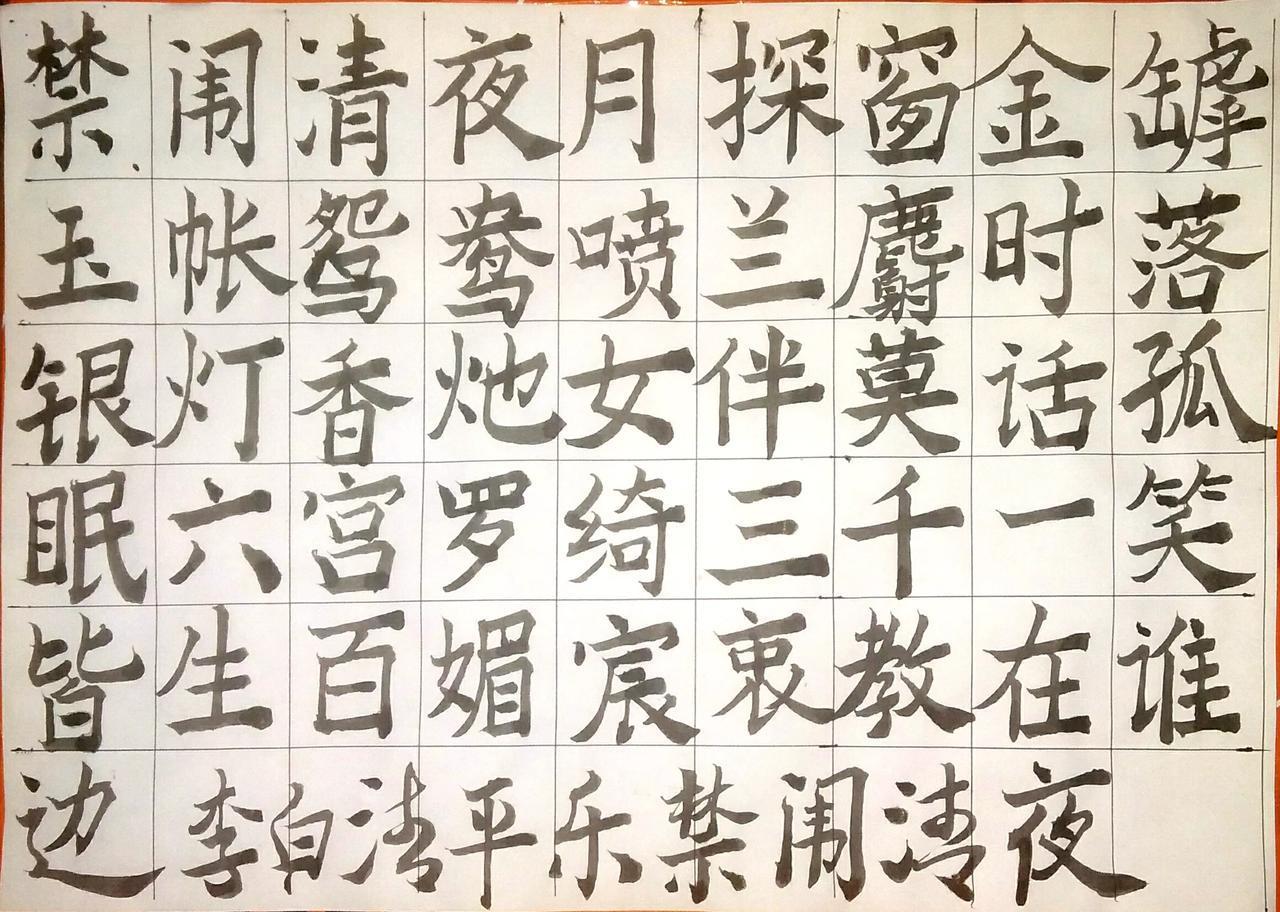 禁闹清夜月探窗金罅
玉帐鸳鸯喷兰麝时落
银灯香灺女伴莫话孤
眠六宫罗绮三千一笑
皆生百媚宸衷教在谁
边李白清平乐禁闹清夜